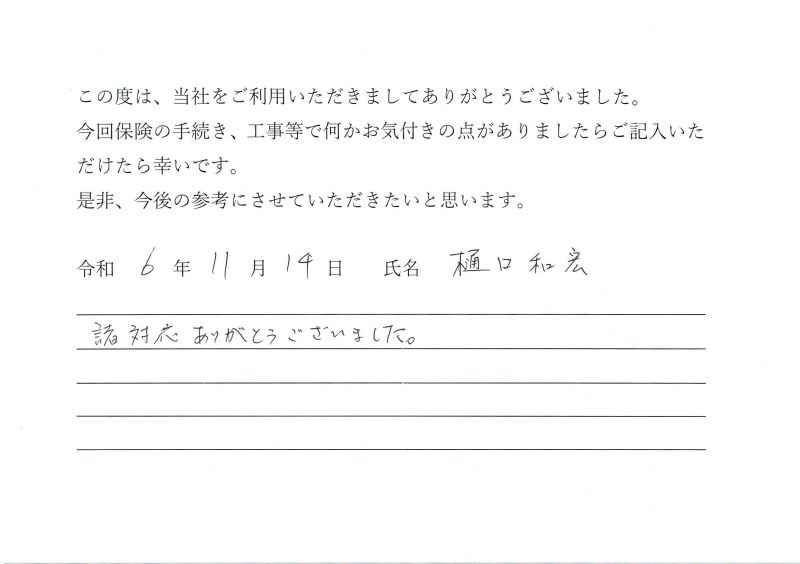 この度は、当社をご利用いただきましてありがとうございました。
今回保険の手続き、工事等で何かお気付きの点がありましたらご記入いた
だけたら幸いです。
是非、今後の参考にさせていただきたいと思います。
令和 6 年 11 月 14 日 氏名 樋口和宏
諸対応ありがとうございました。